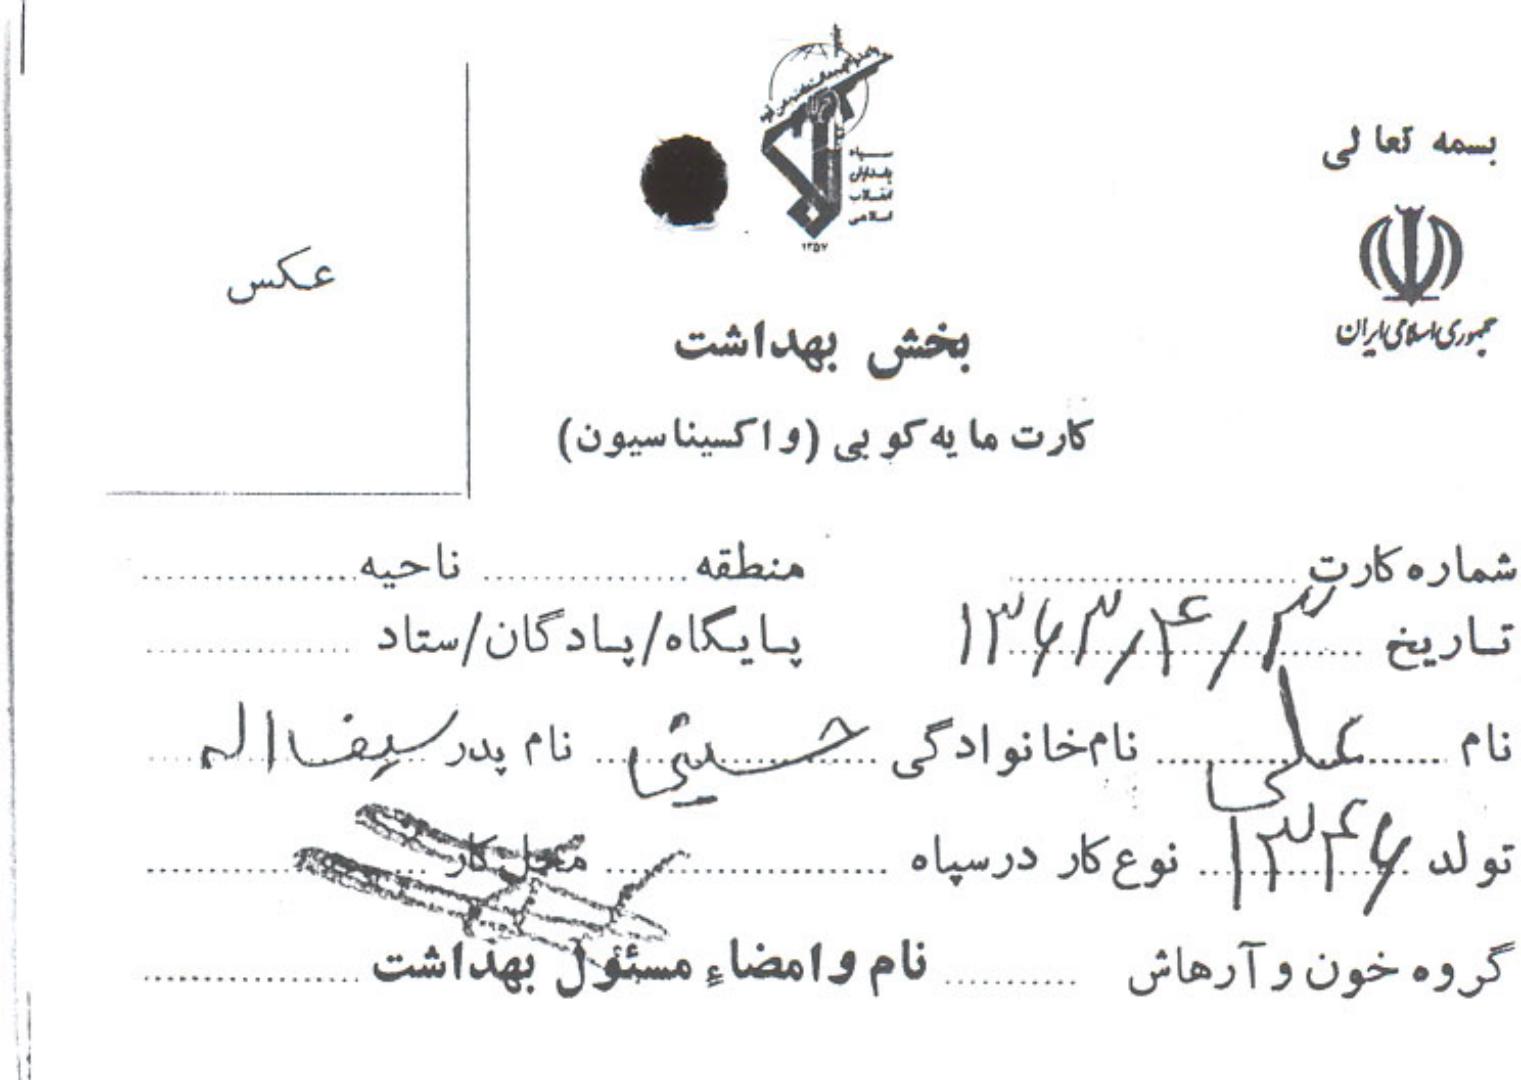 بسمه تعالی
جمهوری اسلامی ایران
سپاه
پاسداران
انقلاب
اسلامی
۱۳۵۷
عکس
بخش بهداشت
کارت مایه کوبی (واکسیناسیون)
شماره کارت منطقه ناحیه
تاریخ ۱۳۶۳/۴/۲ پایگاه/پادگان/ستاد
نام علی نام خانوادگی حسینی نام پدر سیف اله
تولد ۱۳۴۶ نوع کار در سپاه محل کار
گروه خون و آرهاش نام و امضاء مسئول بهداشت